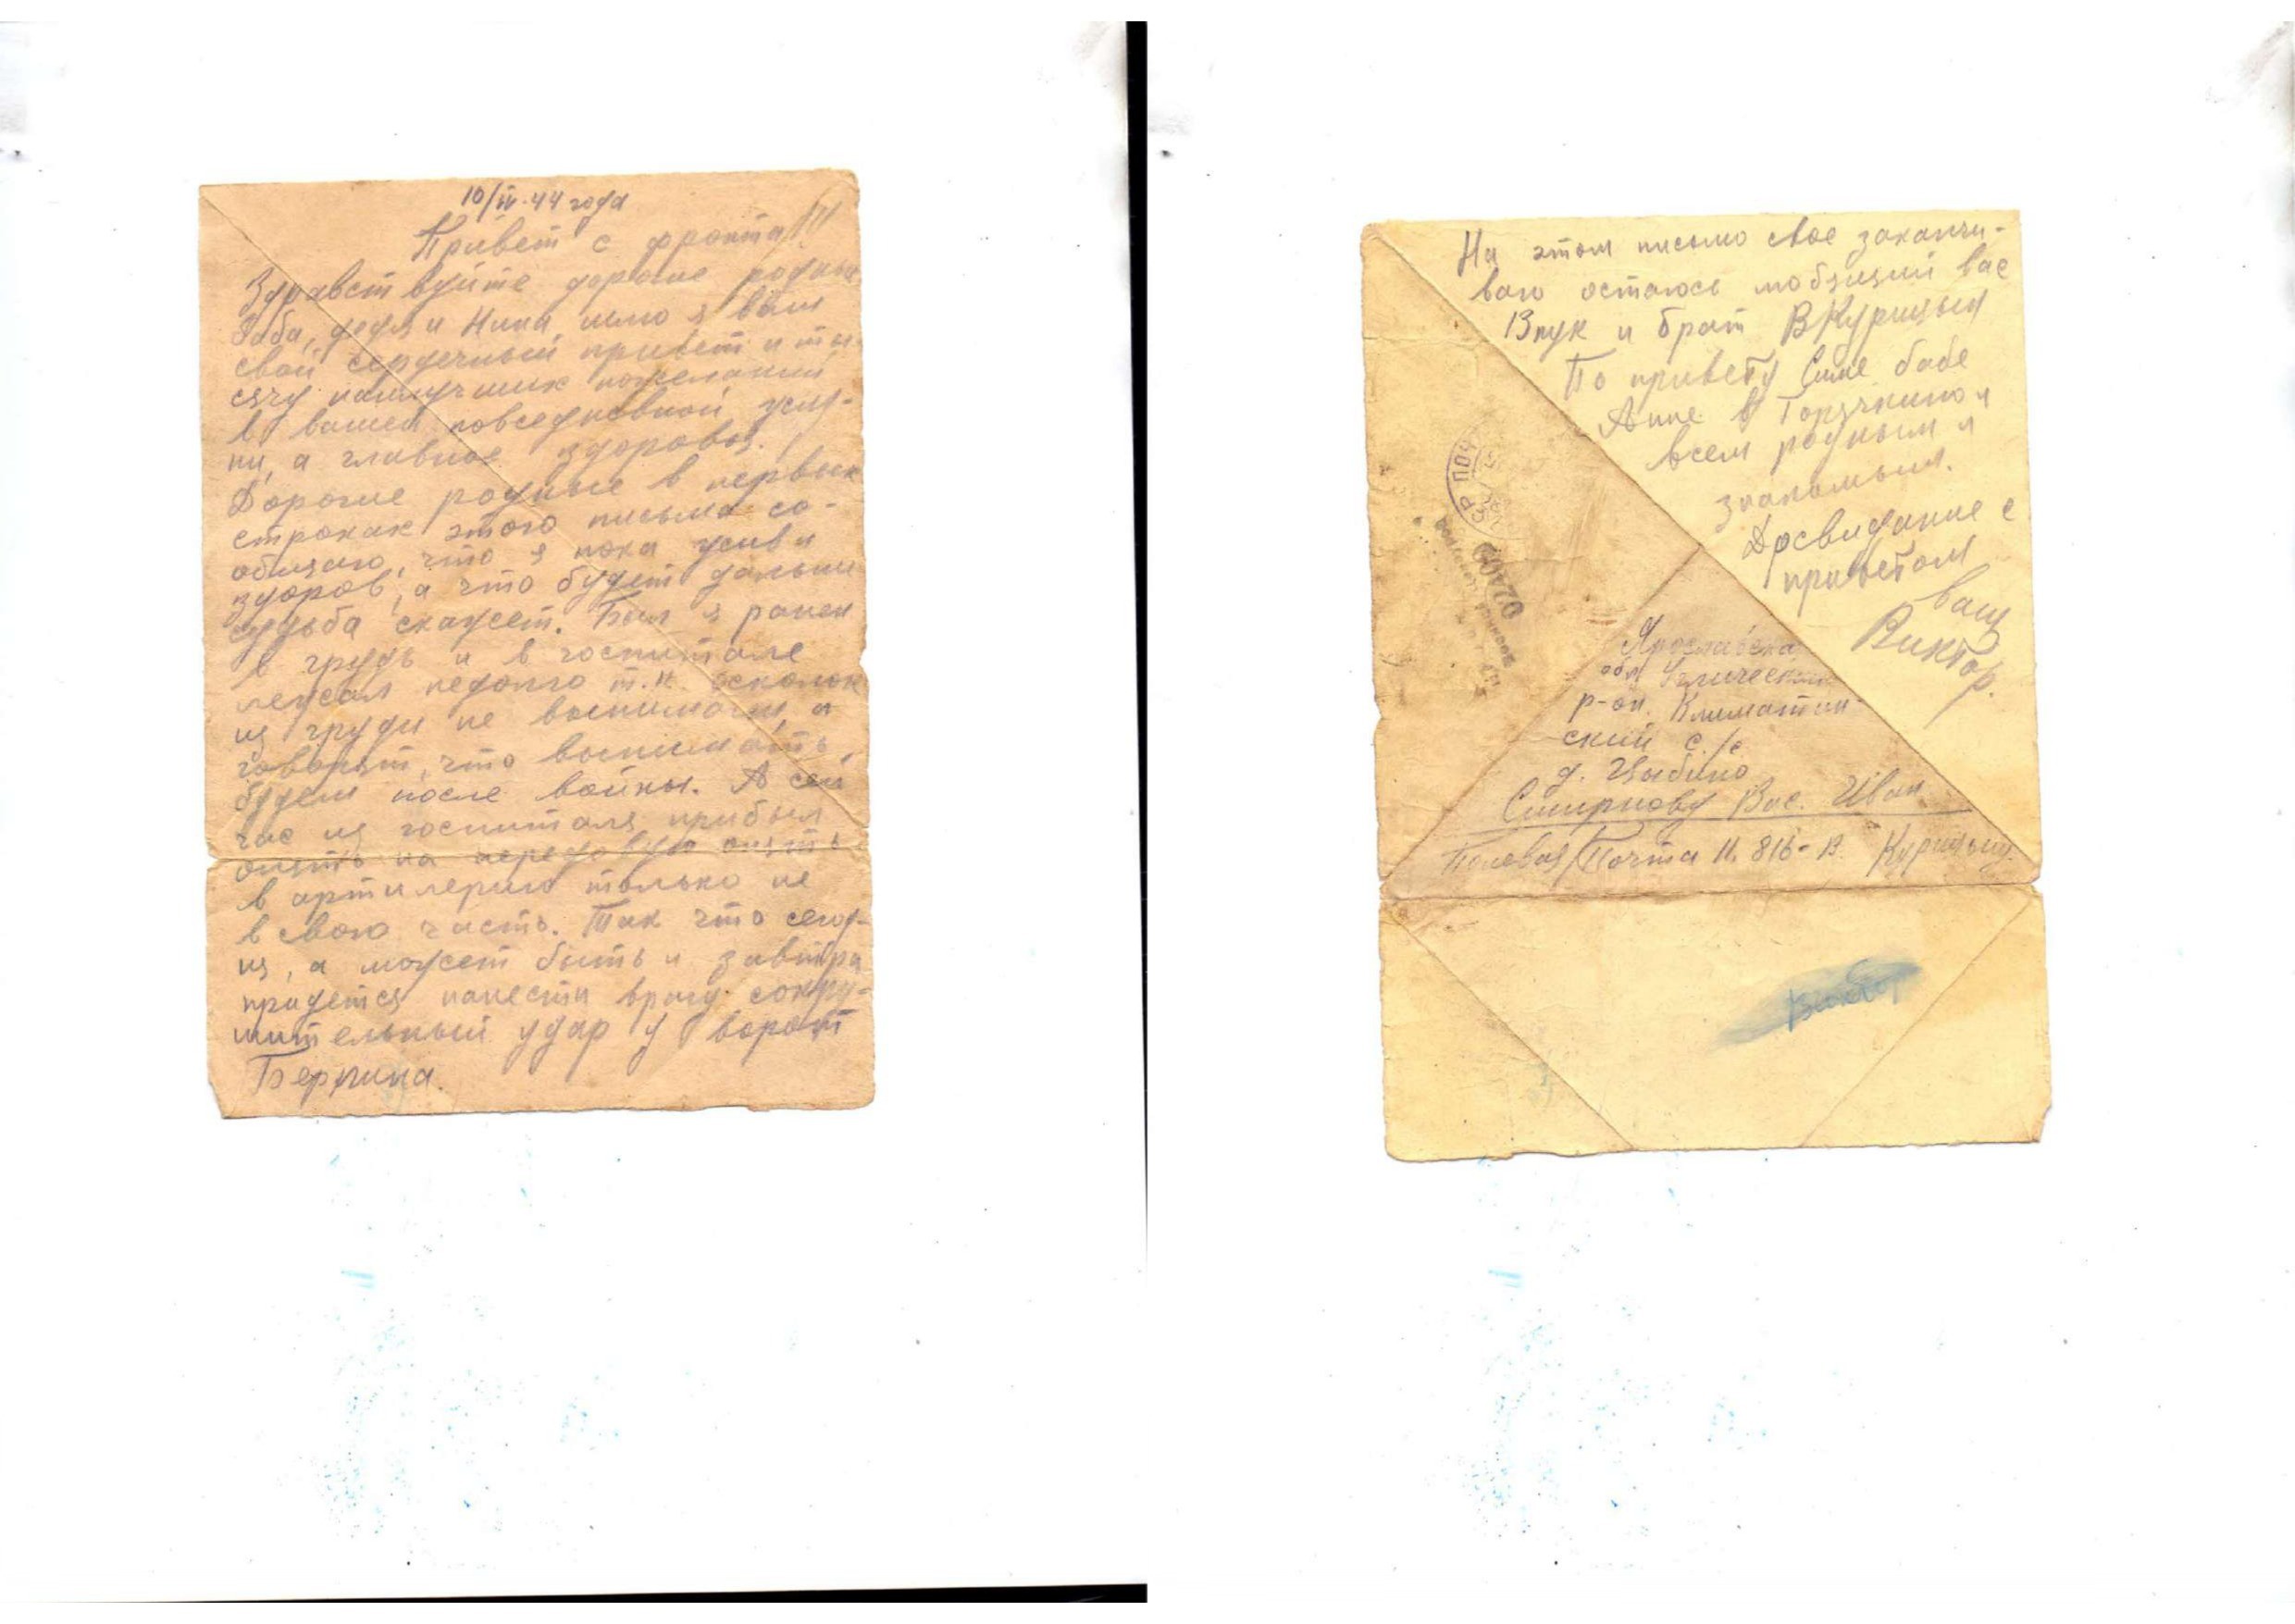 10/IV-44 года
Привет с фронта!!!
Здравствуйте дорогие родные
баба, дедя и Нина, шлю я вам
свой сердечный привет и ты-
сячу наилучших пожеланий
в вашей повседневной жиз-
ни, а главное здоровья.
Дорогие родные в первых
строках этого письма со-
общаю, что я пока жив и
здоров, а что будет дальше
судьба скажет. Был я ранен
в грудь и в госпитале
лежал недолго т.к. осколок
из груди не вынимали, а
говорят, что вынимать
будем после войны. А сей
час из госпиталя прибыл
опять на передовую опять
в артилерию только не
в свою часть. Так что сегод-
ня, а может быть и завтра
придется нанести врагу сокру-
шительный удар у ворот
Берлина.
На этом письмо свое заканчи-
ваю остаюсь любящий вас
Внук и брат ВКурицын
По привету Симе бабе
Анне в Горячкино и
всем родным и
знакомым.
Досвидание с
приветом
ваш
Виктор.
Р ПОЧ
02409
Ярославская
обл Угличский
р-он. Климатин-
ский с./с
д. Цыбино
Смирнову Вас. Иван
Полевая Почта N. 816-В Курицын.
Виктор